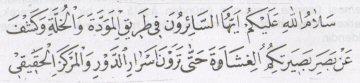 سَلَامُ اللهِ عَلَيْكُمْ أَيُّهَا السَّائِرُونَ فِي طَرِيقِ الْمَوَدَّةِ وَالْخُلَّةِ وَكَشَفَ
عَنْ بَصَرِ بَصِيرَتِكُمُ الْغِشَاوَةَ حَتَّى تَرَوْنَ أَسْرَارَ الدَّوْرِ وَالْمَرْكَزِ الْحَقِيقِيِّ